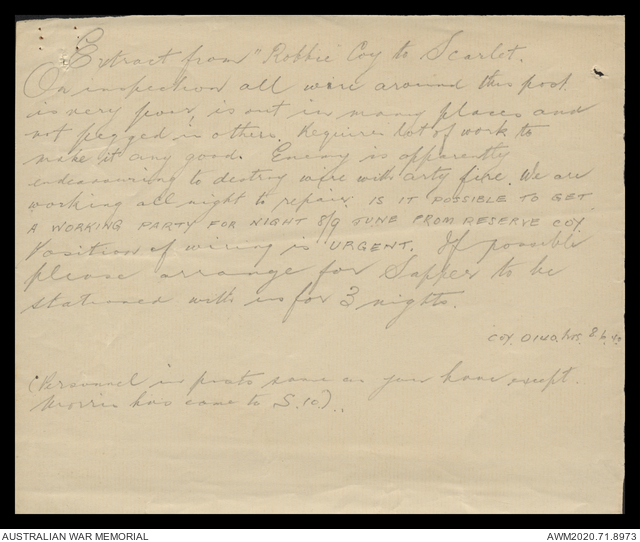 Extract from "Robbie" Coy to Scarlet.
On inspection all wire around this post
is very poor, is cut in many places and
not pegged in others. Requires lot of work to
make it any good. Enemy is apparently
endeavouring to destroy wire with arty fire. We are
working all night to repair. IS IT POSSIBLE TO GET
A WORKING PARTY FOR NIGHT 8/9 JUNE FROM RESERVE COY.
Position of wiring is URGENT. If possible
please arrange for Sapper to be
stationed with us for 3 nights.
COY. 0140 hrs. 8.6.
(Personnel in posts same as you have except
Morris has come to S.10)..
AUSTRALIAN WAR MEMORIAL
AWM2020.71.8973